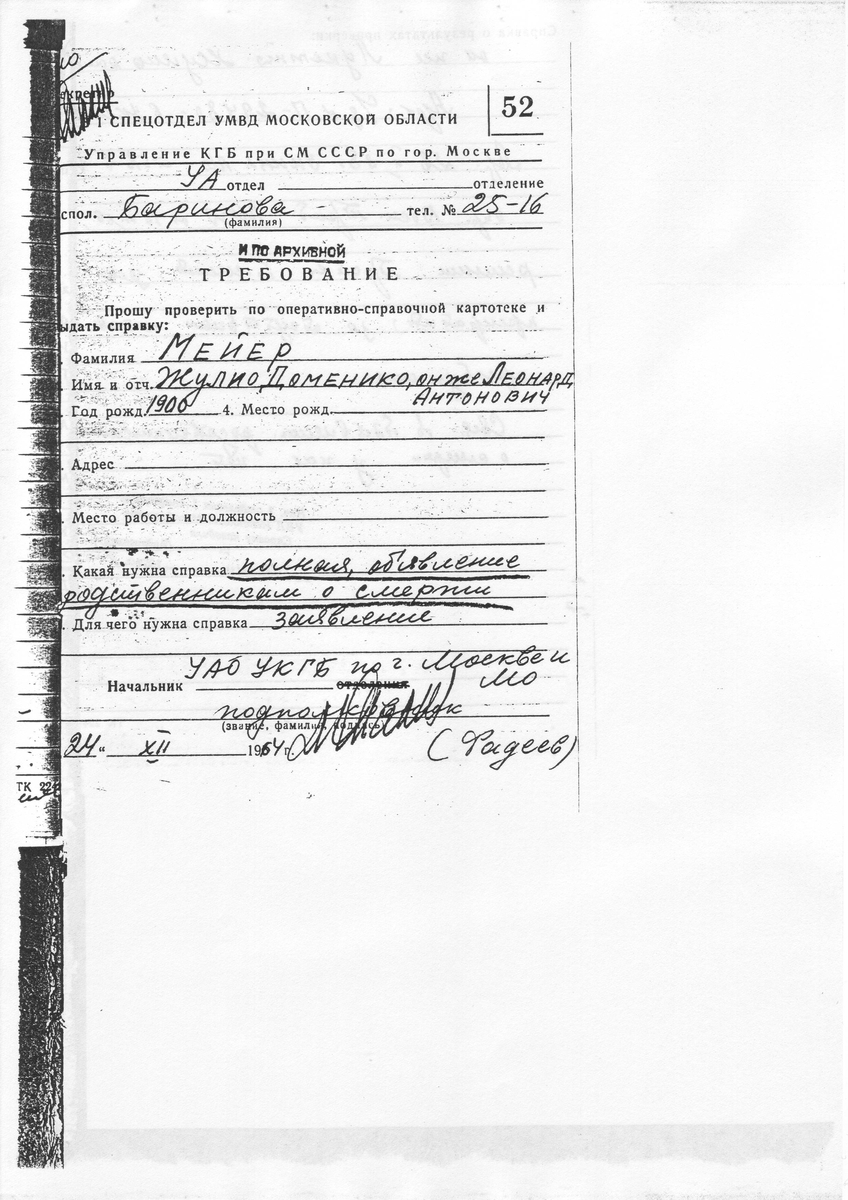 1 СПЕЦОТДЕЛ УМВД МОСКОВСКОЙ ОБЛАСТИ
52
Управление КГБ при СМ СССР по гор. Москве
УА отдел отделение
спол. Баринова тел. № 25-16
(фамилия)
И ПО АРХИВНОЙ
ТРЕБОВАНИЕ
Прошу проверить по оперативно-справочной картотеке и
ыдать справку:
. Фамилия МЕЙЕР
. Имя и отч. ЖУЛИО, ДОМЕНИКО, он же ЛЕОНАРД
АНТОНОВИЧ
. Год рожд. 1900 4. Место рожд.
. Адрес
. Место работы и должность
. Какая нужна справка полная, объявление
родственникам о смерти
. Для чего нужна справка заявление
УАО УКГБ по г. Москве и
Начальник отделения МО
подполковник
(звание, фамилия, подпись)
24 " XII 1964 г.
(Фадеев)